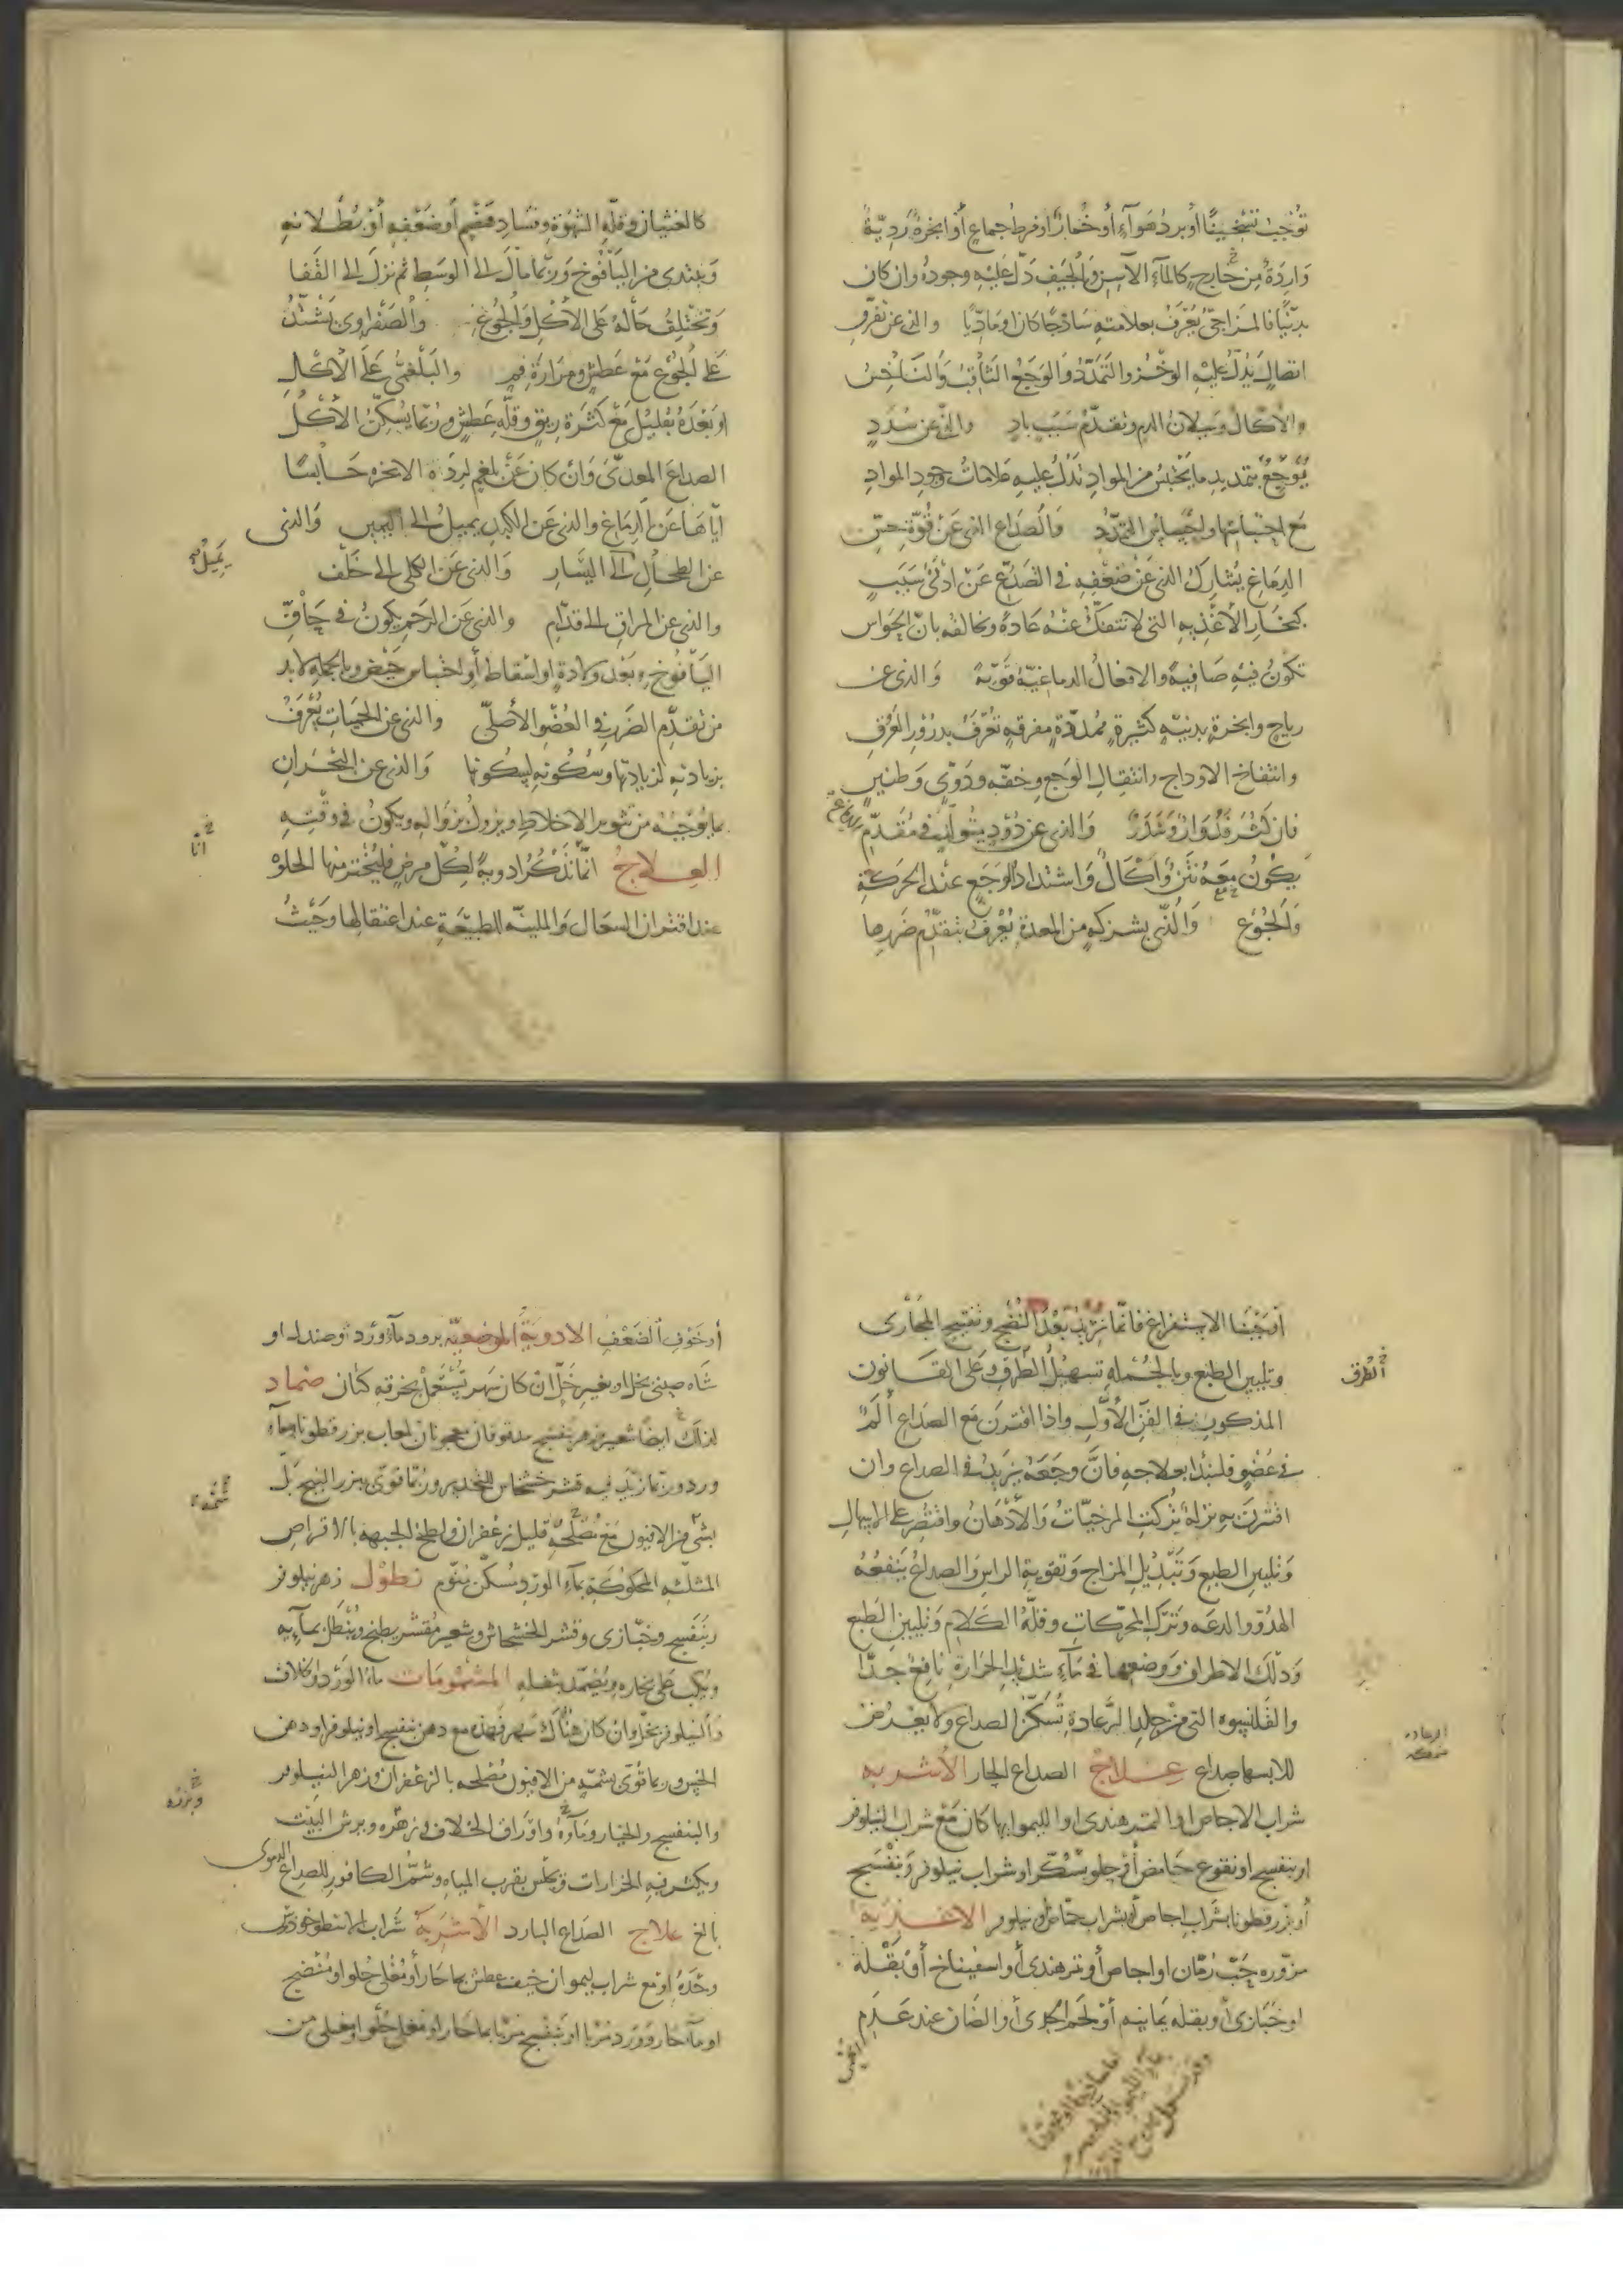 توجب تسخينًا أو برد هواء أو خمار أو فرط جماع أو أبخرة رديّة
واردة من خارج كالماء الآسن والجيف دلّ عليه وجوده وان كان
بدنيًّا فالمزاجىّ يُعْرَفُ بعلامته ساذجًا كان او مادّيًا والذى عن تفرّق
اتصال يدل عليه الوخز والتمدّد والوجع الثاقب والناخس
والأكال وسيلان الدم وتقدّم سبب بادٍ والذى عن سُدَدٍ
يُوجِعُ بتمديد ما يحتبس من المواد تدل عليه علامات وجود المواد
مع احتباسها واحساس التمدّد والصداع الذى عن قوّة حسّ
الدماغ يشارك الذى عن ضعفه فى التصدّع عن أدنى سبب
كبخار الأغذيه التى لا تنفكّ عنه عادة ويخالفه بانّ الحواس
تكون فيه صافية والافعال الدماغيّة قويّة والذى عن
رياح وابخرة بدنيّة كثيرة ممدّدة مفرقة تعرّف بدرور العرق
وانتفاخ الاوداج وانتقال الوجع وخفّه ودوىّ وطنين
فان كثر فدوار وسدر والذى عن دُودٍ يتولّد فى مُقَدّم الدماغ
يكون معه نتن وأكال واشتداد الوجع عند الحركة
والجوع والذى بشركه من المعدة يُعْرَفُ بتقدّم ضررها
كالغثيان وقلّه الشهوة وفساد هضم أو ضعفه أو بطلانه
ويبتدى من اليأفوخ وربّما مال الى الوسط ثم نزل الى القفا
وتختلف حاله على الأكل والجوع والصفراوى يشتدّ
على الجوع مع عطش ومرارة فم والبلغمىّ على الأكل
او بعده بقليل مع كثرة ريق وقلّه عطش وربّما يسكّن الأكل
الصداع المعدىّ وان كان عن بلغم لردّه الابخره حابسًا
ايّاها عن الدماغ والذى عن الكبد يميل الى اليمين والذى
يميل
عن الطحال الى اليسار والذى عن الكلى الى خلف
والذى عن المراق الى قدّام والذى عن الرحم يكون فى حاقّ
اليأفوخ وبعد ولادة او اسقاط أو احتباس حيض وبالجمله لا بد
من تقدّم الضرر فى العضو الأصلىّ والذى عن الحميات يُعْرَفُ
بزيادته لزيادتها وسكونه لسكونها والذى عن البحران
بما يوجبه من تثوير الاخلاط ويزول بزواله ويكون فى وقته
انا
العلاج انّما نذكر ادوية لكلّ مرض فليُختر منها الحلوه
عند اقتران السعال والملينه للطبيعة عند اعتقالها وحيث
أوجبنا الاستفراغ فانّما نريد بعد النضج وتفتيح المجارى
وتليين الطبع وبالجمله تسهيل الطرق على القانون
الطرق
المذكور فى الفنّ الأوّل واذا اقترن مع الصداع ألم
فى عضو فليبدأ بعلاجه فانّ وجعه يزيد فى الصداع وان
اقترن به نزلة تركت المرخيات والأدهان واقتصر على الاسهال
وتليين الطبع وتبديل المزاج وتقوية الراس والصداع ينفعه
الهدوّ والدعه وترك المحرّكات وقلّة الكلام وتليين الطبع
ودلك الاطراف ووضعها فى ماء شديد الحرارة نافع جدًّا
والقلنسوه التى من جلد الرعادة تسكّن الصداع ولا يعد من
الرعاده سمكه
للابسها صداع علاج الصداع الحار الأشربه
شراب الاجاص او التمر هندى او الليمو ايها كان مع شراب النيلوفر
او بنفسج او نقوع حامض أو حلو بسُكّر او شراب نيلوفر وبنفسج
أو بزر قطونا بشراب اجاص أو شراب حماض او نيلوفر الاغذيه
مزوّره حبّ رمّان او اجاص أو تمر هندى أو اسفيناخ أو بقلة
او خبازى أو بقله يمانيه أو لحم الجدى أو الضان عند عدم
أو خوف الضعف الادوية الموضعيه برود ماء ورد وصندل او
شاه صينى بخل او بغير خلّ ان كان سهر تستعمل بخرقه كتان ضماد
لذلك ايضا شعير وزهر بنفسج مدقوقان معجونان بلعاب بزر قطونا وماء
ورد وربّما زيد فيه قشر خشخاش للتخدير وربّما قوّى ببزر البنج بل
بشئ من الافيون مع مصلحه قليل زعفران ولطخ الجبهه بالاقراص
المثلثه المحكوكة بماء الورد مسكّن منوّم نطول زهر نيلوفر
وبنفسج وخبّازى وقشر الخشخاش وشعير مُقشّر يطبخ وينطل بمائه
ويكب على بخاره ويضمد بثفله المشمومات ماء الورد او خلاف
والنيلوفر بخلّ وان كان هناك سهر فهذه مع دهن بنفسج او نيلوفر او دهن
الخس وربما قوّى بشمّه من الافيون مُصلحه بالزعفران وزهر النيلوفر
والبنفسج والخيار وماؤه واوراق الخلاف او زهره ويرش البيت
ويكثر فيه الخرارات ويجلس بقرب المياه وشمّ الكافور للصداع الدموى
بالخ علاج الصداع البارد الأشربة شراب الاسطوخودوس
وحدهُ او مع شراب ليمو ان خيف عطش بماء حار أو مُغلى حلو او منضج
او ماء حار وورد مربّا او بنفسج مربّا بماء حار او مغلى حلو او مغلى من